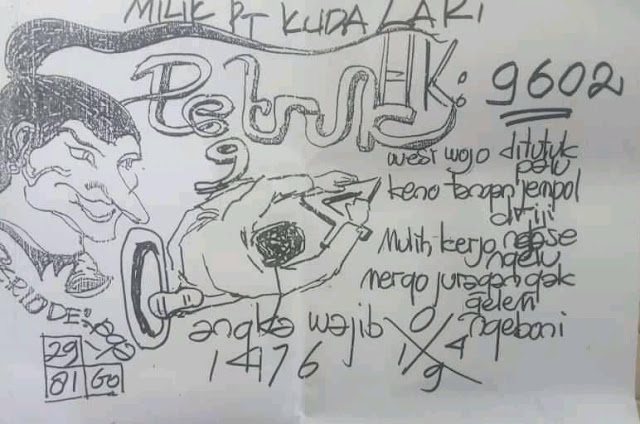 MILIK PT KUDA LAKI
Petruk
HK: 9602
9
wesi wojo ditutuk
palu
keno tangan jempol
driji
Mulih kerjo ndase
ngelu
mergo juragan gak
gelem
ngeboni
PERIODE:
angka wajib
1476
0
1 4
9
29
81 60